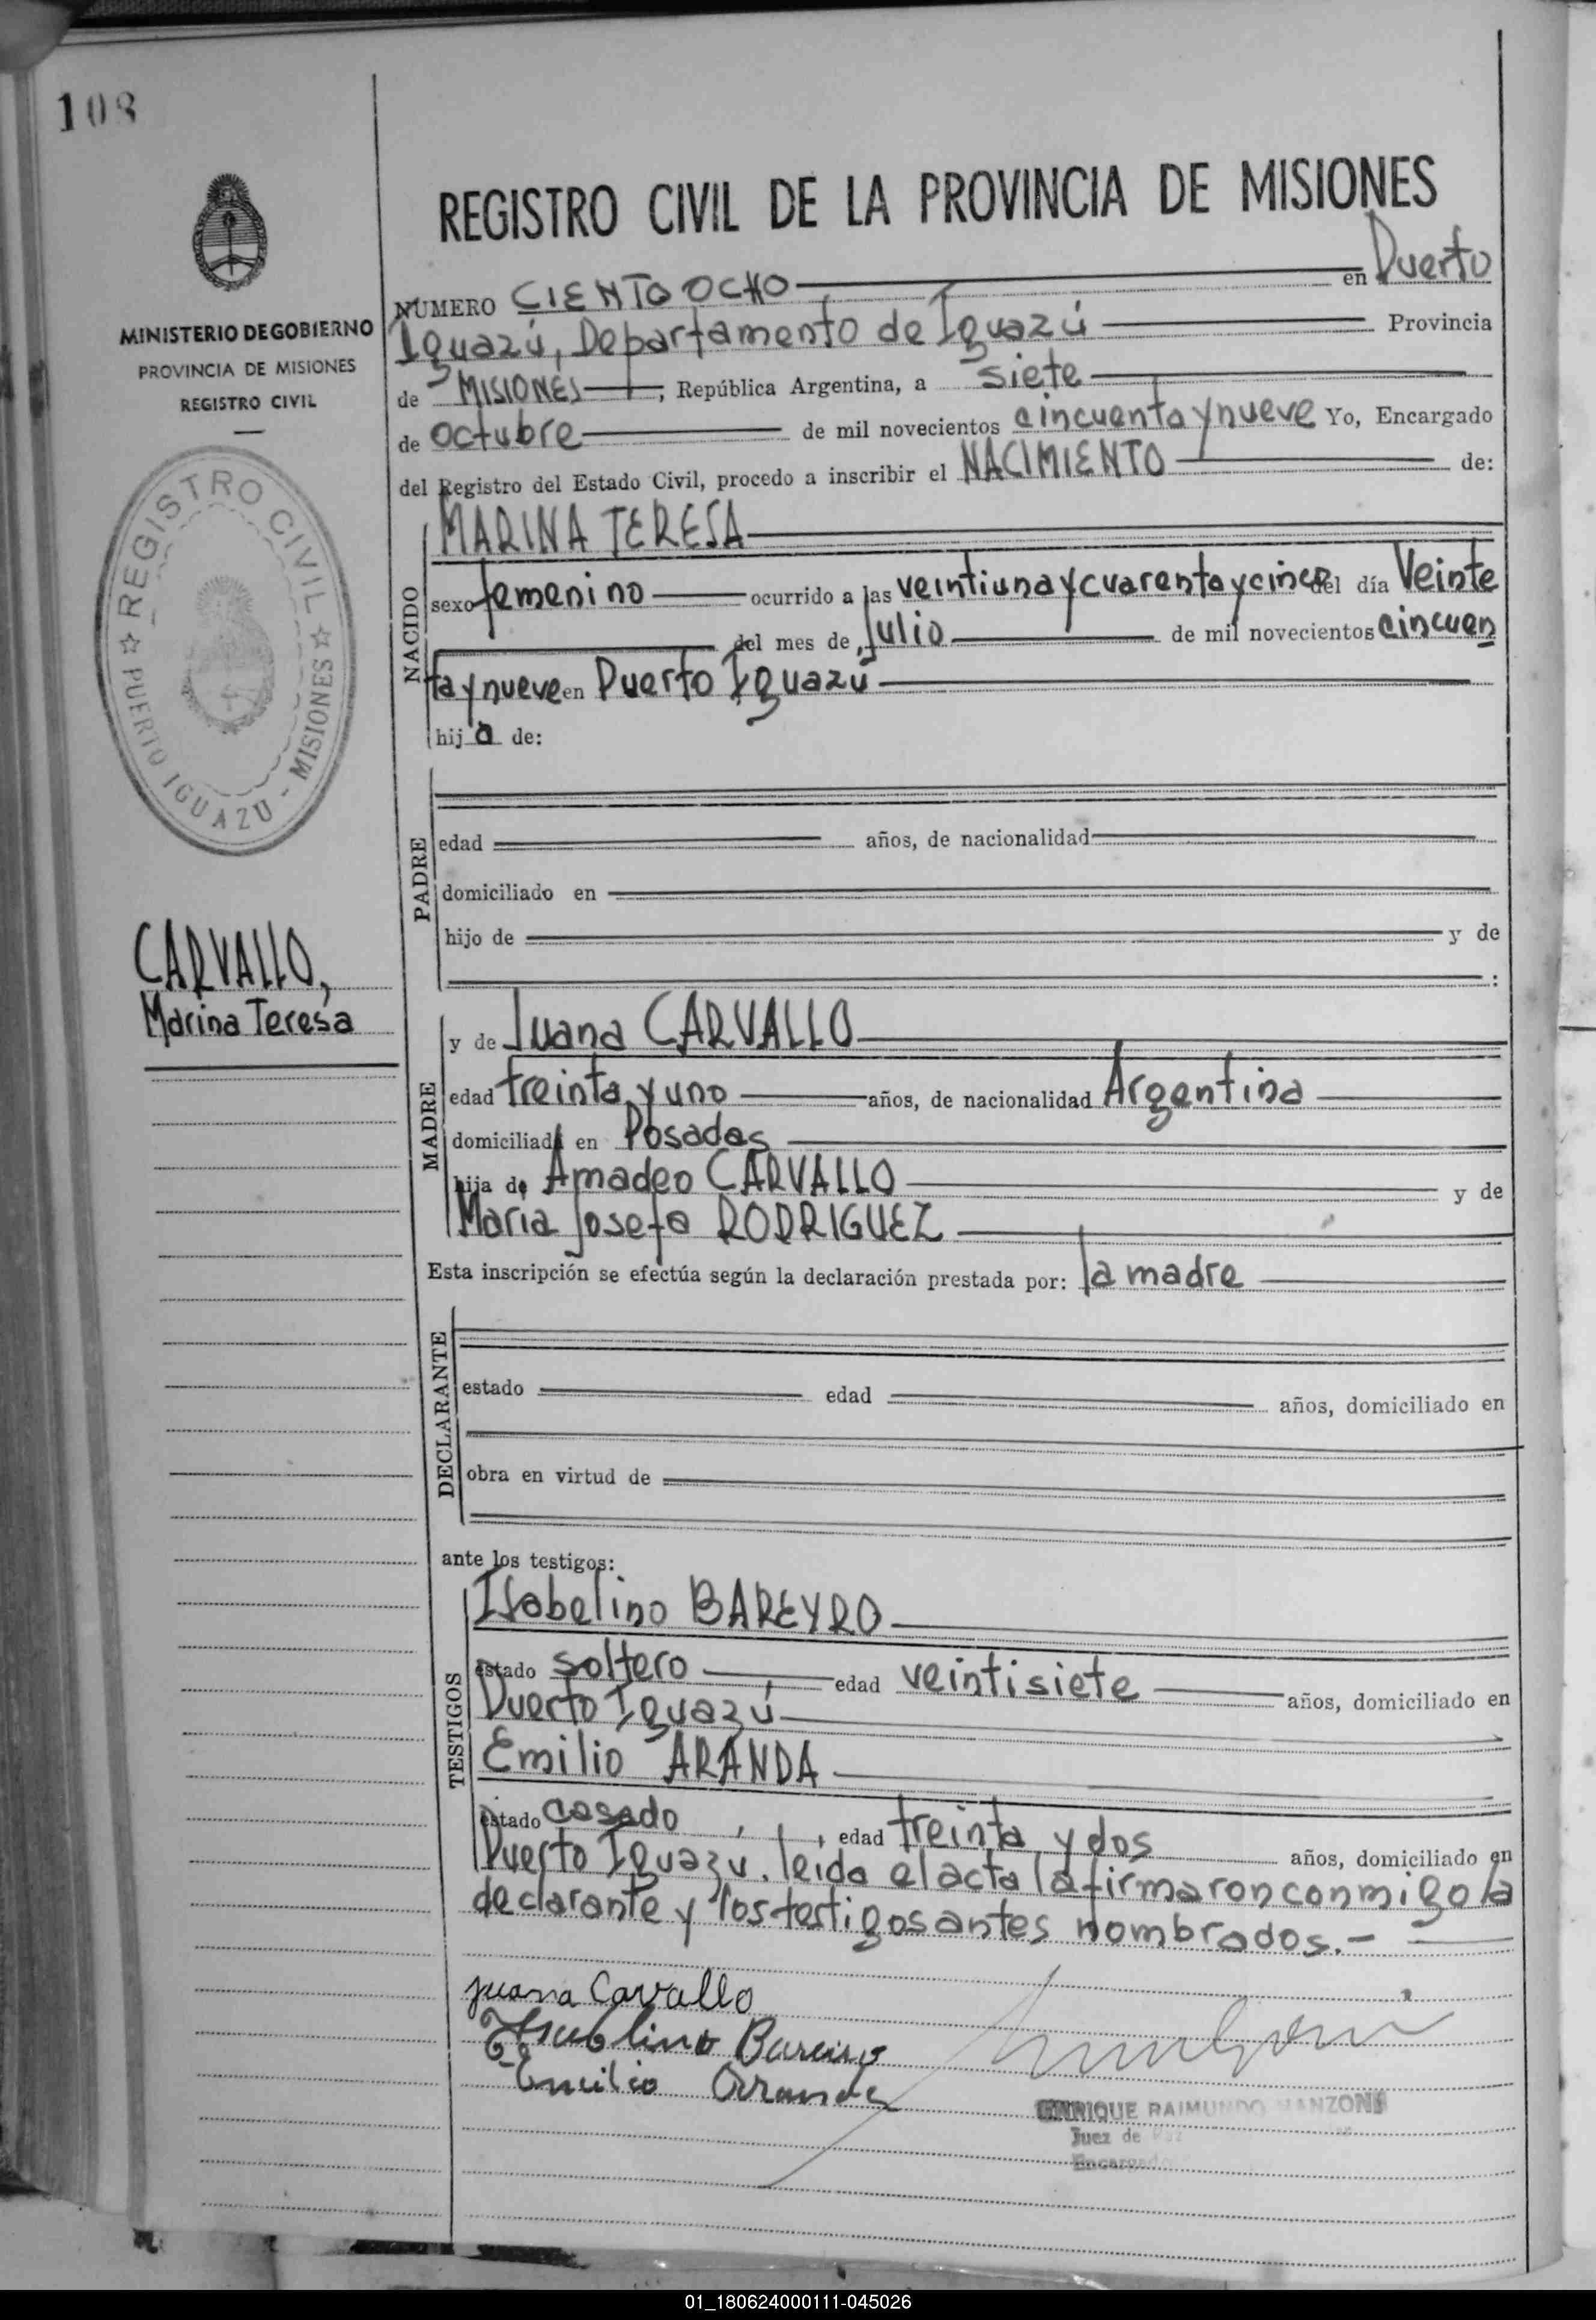 108
MINISTERIO DE GOBIERNO
PROVINCIA DE MISIONES
REGISTRO CIVIL
REGISTRO CIVIL
PUERTO IGUAZU - MISIONES
CARVALLO,
Marina Teresa
REGISTRO CIVIL DE LA PROVINCIA DE MISIONES
NUMERO CIENTO OCHO en Puerto
Iguazú, Departamento de Iguazú Provincia
de MISIONES, República Argentina, a siete
de octubre de mil novecientos cincuenta y nueve Yo, Encargado
del Registro del Estado Civil, procedo a inscribir el NACIMIENTO de:
NACIDO
MARINA TERESA
sexo femenino ocurrido a las veintiuna y cuarenta y cinco del día Veinte
del mes de Julio de mil novecientos cincuen
ta y nueve en Puerto Iguazú
hija de:
PADRE
edad años, de nacionalidad
domiciliado en
hijo de y de
:
MADRE
y de Juana CARVALLO
edad treinta y uno años, de nacionalidad Argentina
domiciliada en Posadas
hija de Amadeo CARVALLO y de
Maria Josefa RODRIGUEZ
Esta inscripción se efectúa según la declaración prestada por: la madre
DECLARANTE
estado edad años, domiciliado en
obra en virtud de
ante los testigos:
TESTIGOS
Isabelino BAREYRO
estado soltero edad veintisiete años, domiciliado en
Puerto Iguazú
Emilio ARANDA
estado casado , , , edad treinta y dos años, domiciliado en
Puerto Iguazu. leida el acta la firmaron conmigo la
declarante y los testigos antes nombrados.-
Juana Carvallo
Isabelino Bareiro
Emilio Aranda
ENRIQUE RAIMUNDO MANZONI
Juez de Paz
Encargado
01_180624000111-045026